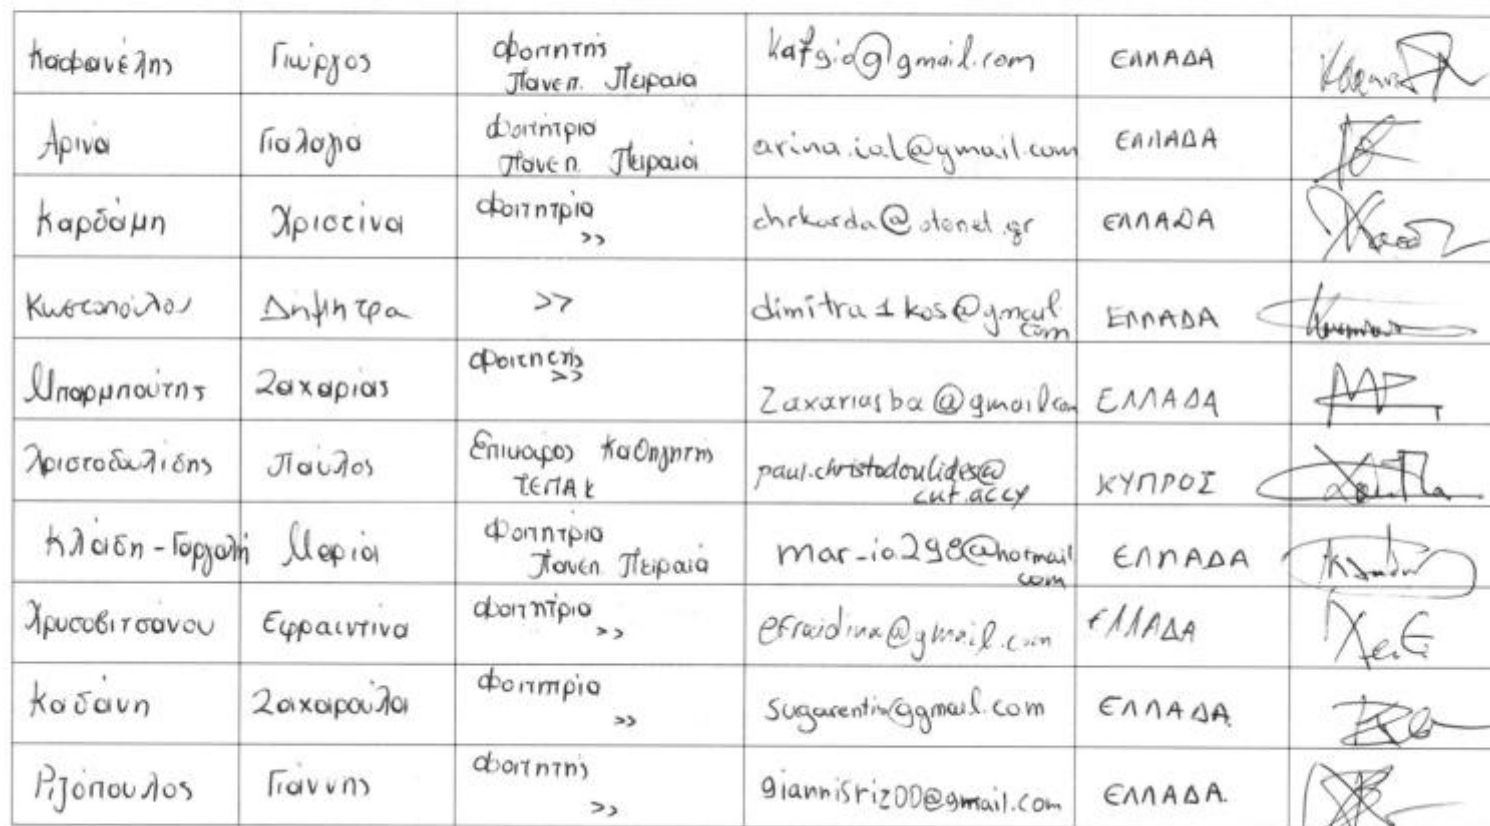 Καφανέλης Γιώργος Φοιτητής Πανεπ. Πειραιά kafgio@gmail.com ΕΛΛΑΔΑ
Αρινα Γιαλαγά Φοιτήτρια Πανεπ. Πειραιά arina.ial@gmail.com ΕΛΛΑΔΑ
Καρδάμη Χριστίνα Φοιτητρια >> chrkarda@otenet.gr ΕΛΛΑΔΑ
Δήμητρα >> dimitra1kos@gmail.com ΕΛΛΑΔΑ
Μπαρμπούτης Ζαχαρίας Φοιτητής >> Zaxariasba@gmail.com ΕΛΛΑΔΑ
Χριστοδουλίδης Παύλος Επίκουρος Καθηγητής ΤΕΠΑΚ paul.christodoulides@cut.ac.cy ΚΥΠΡΟΣ
Κλάδη - Γαργαλή Μαρία Φοιτήτρια Πανεπ. Πειραιά mar_io298@hotmail.com ΕΛΛΑΔΑ
Χρυσοβιτσάνου Εφραιντίνα Φοιτητρια >> efraidina@gmail.com ΕΛΛΑΔΑ
Καδάνη Ζαχαρούλα Φοιτητρια >> sugarentin@gmail.com ΕΛΛΑΔΑ.
Ριζόπουλος Γιάννης Φοιτητής >> giannisriz00@gmail.com ΕΛΛΑΔΑ.